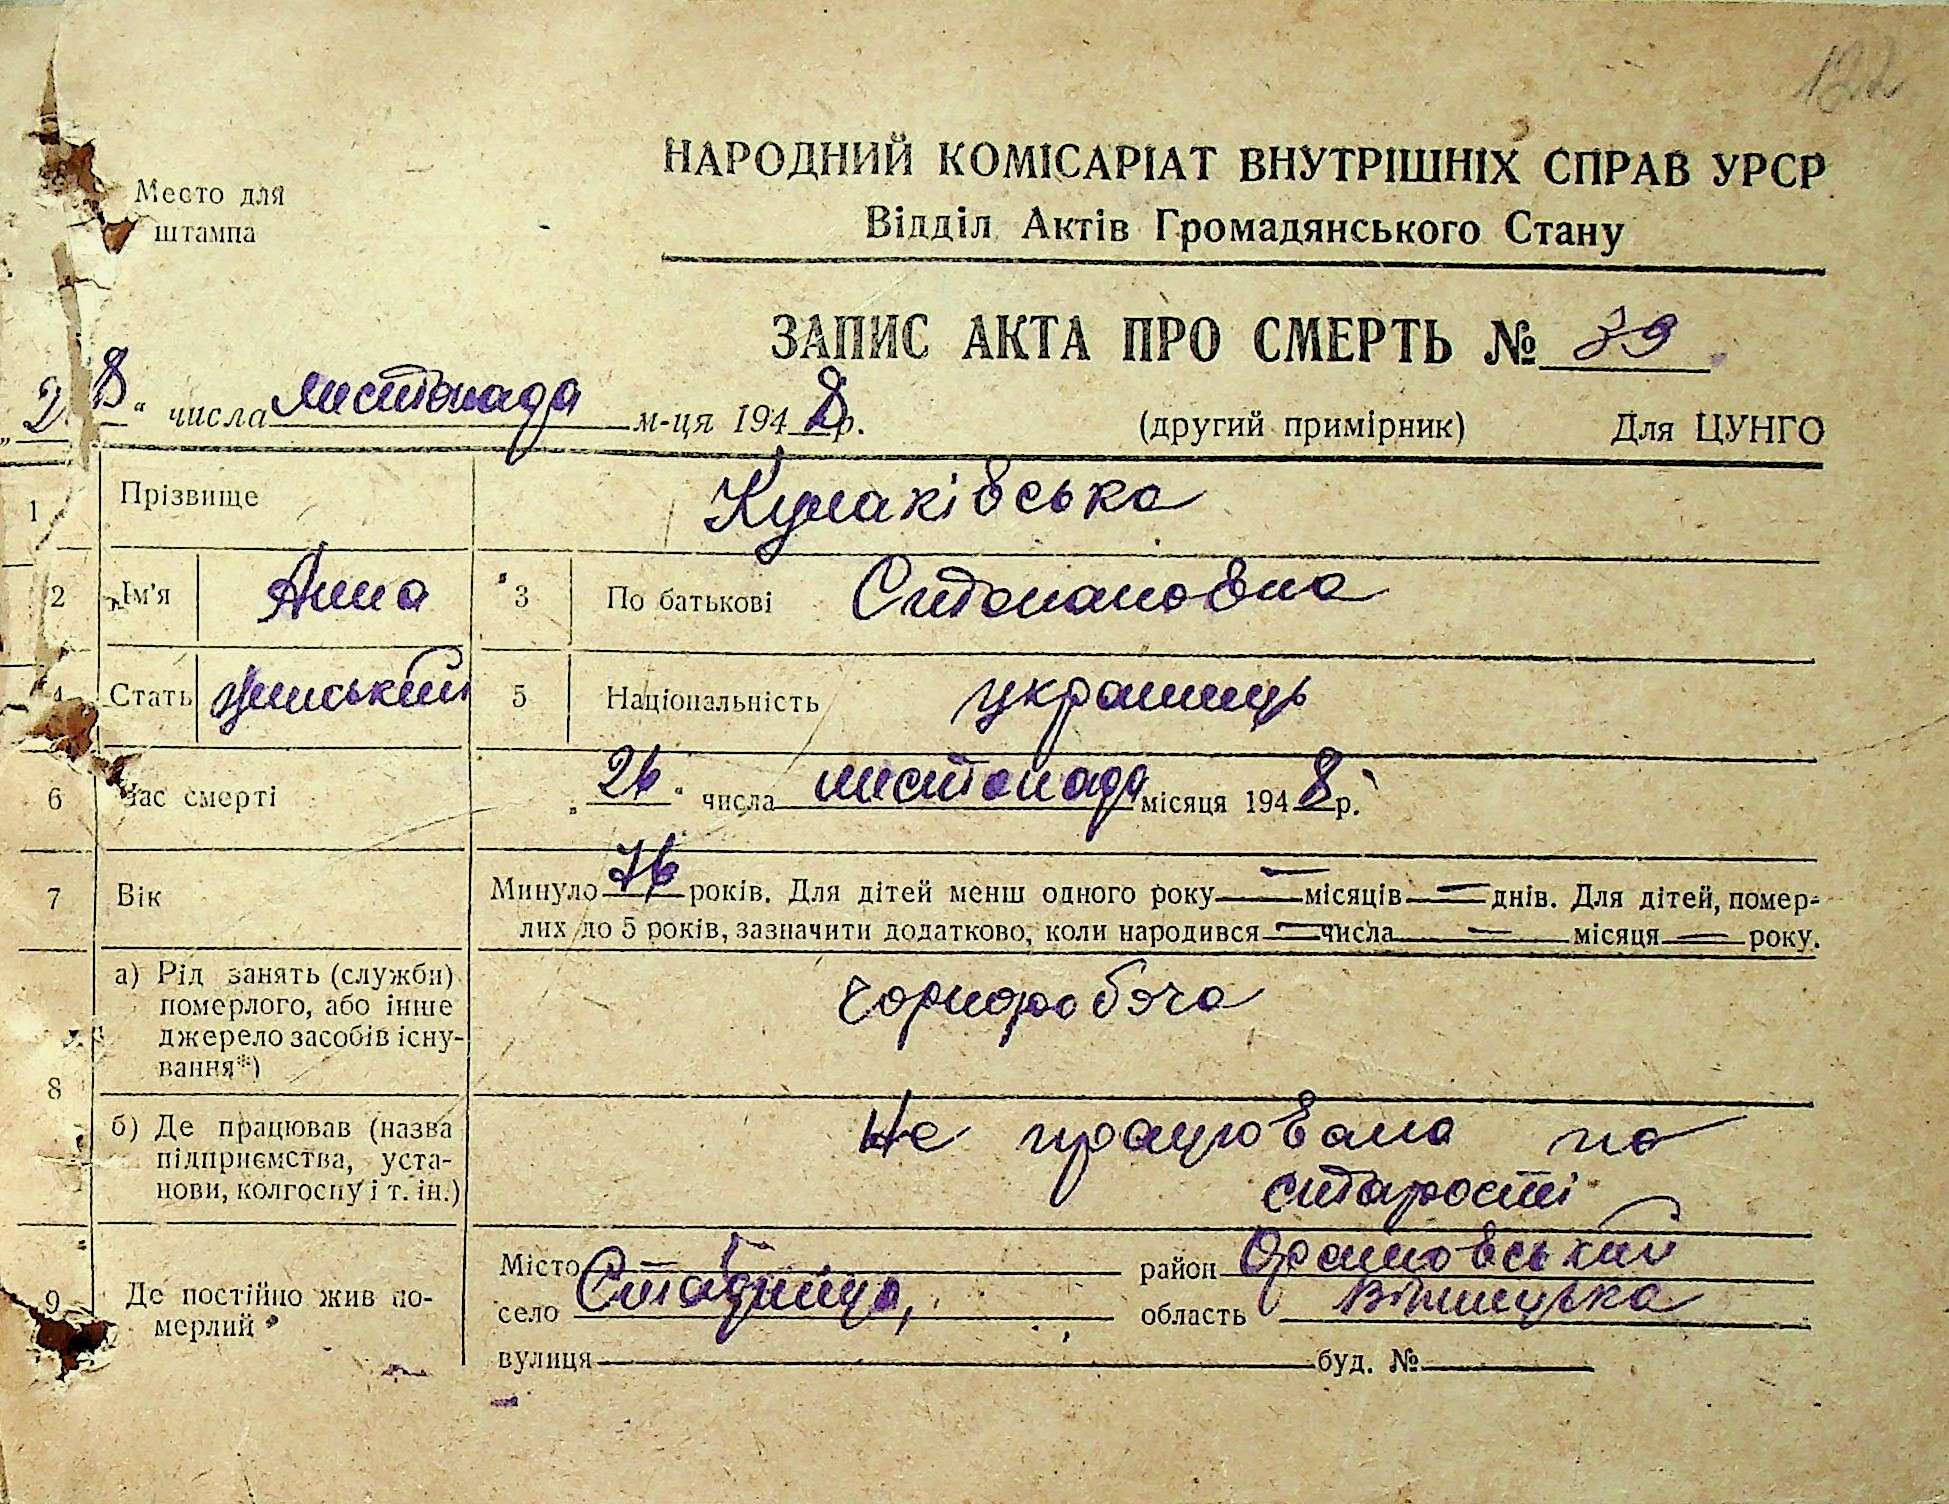 122
НАРОДНИЙ КОМІСАРІАТ ВНУТРІШНІХ СПРАВ УРСР
Место для штампа
Відділ Актів Громадянського Стану
ЗАПИС АКТА ПРО СМЕРТЬ № 39
„28“ числа листопада м-ця 1948 р. (другий примірник) Для ЦУНГО
1 Прізвище Кулаківська
2 Ім'я Анна 3 По батькові Стопановна
4 Стать жінський 5 Національність українць
6 Час смерті „26“ числа листопада місяця 1948 р.
7 Вік Минуло 76 років. Для дітей менш одного року — місяців — днів. Для дітей, помер-
лих до 5 років, зазначити додатково, коли народився — числа — місяця — року.
8 а) Рід занять (служби) померлого, або інше джерело засобів існу-вання*) чорноробоча
б) Де працював (назва підприємства, уста-нови, колгоспу і т. ін.) Не працювала по
старості
9 Де постійно жив по-мерлий Місто — район
село область Вінницька
вулиця буд. №